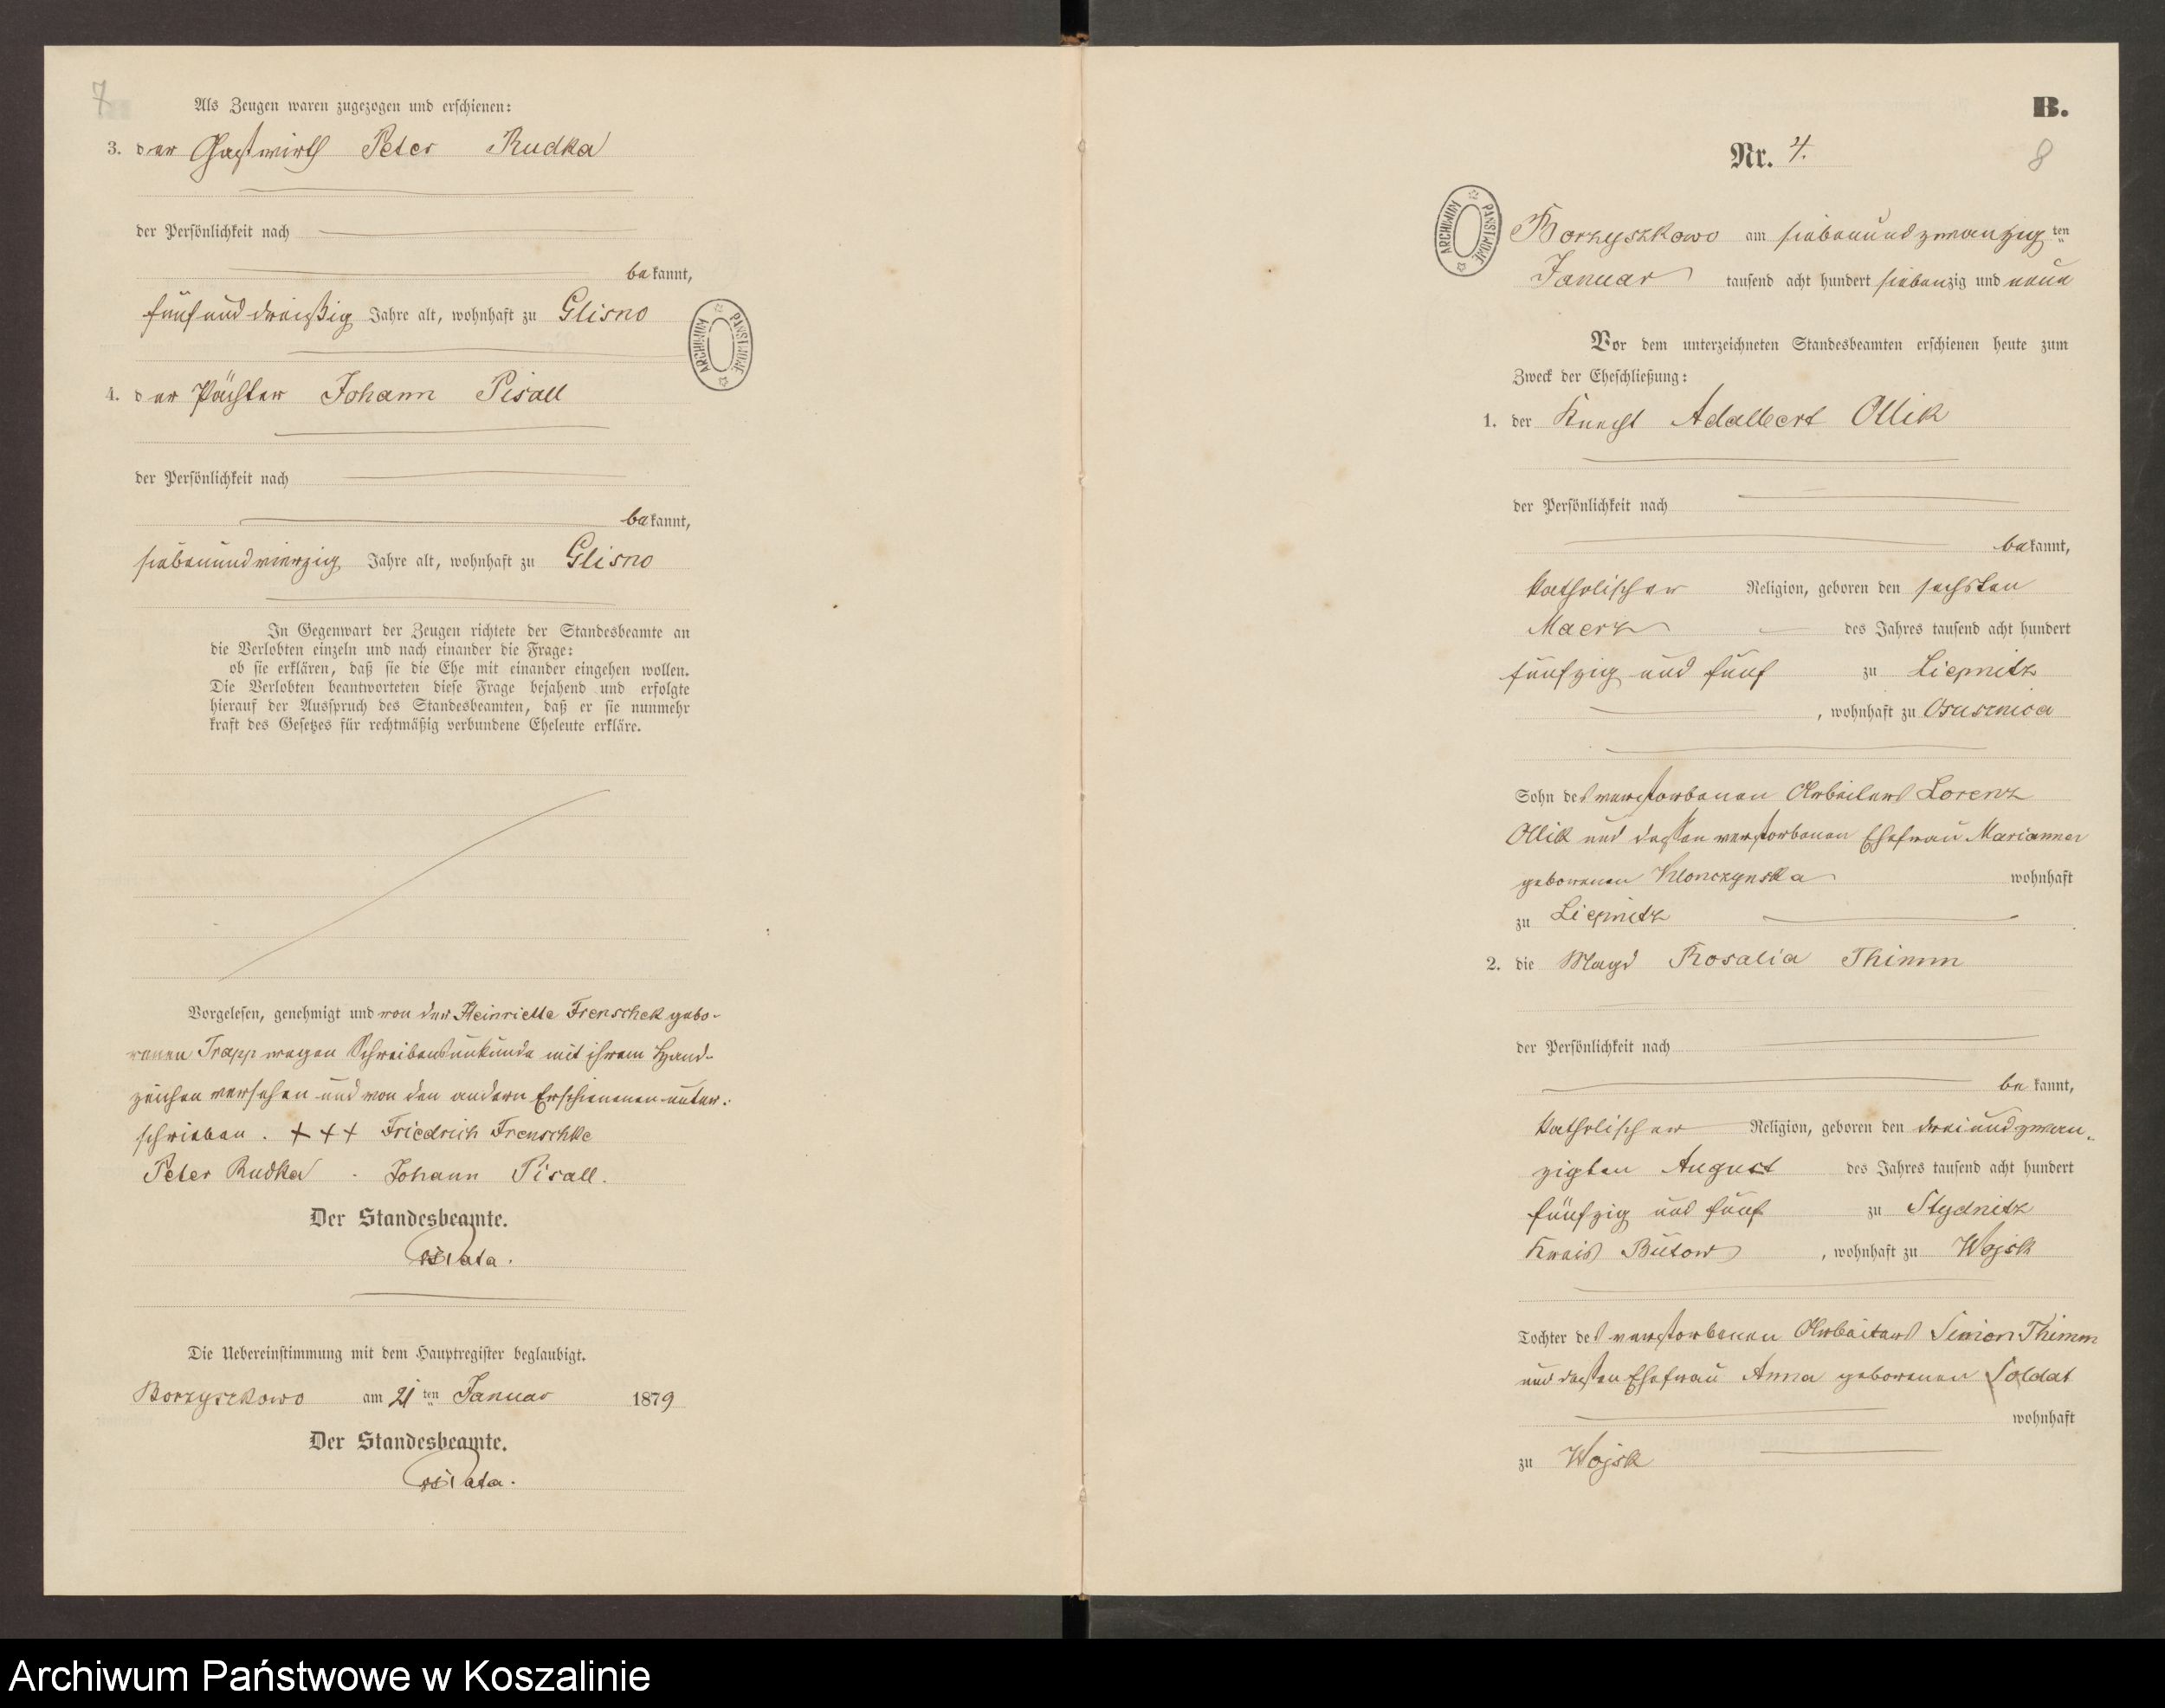 7
Als Zeugen waren zugezogen und erschienen:
3. der Gastwirth Peter Rudka
der Persönlichkeit nach
bekannt,
fünfunddreißig Jahre alt, wohnhaft zu Glisno
4. der Pächter Johann Pisall
der Persönlichkeit nach
bekannt,
siebenundvierzig Jahre alt, wohnhaft zu Glisno
In Gegenwart der Zeugen richtete der Standesbeamte an
die Verlobten einzeln und nach einander die Frage:
ob sie erklären, daß sie die Ehe mit einander eingehen wollen.
Die Verlobten beantworteten diese Frage bejahend und erfolgte
hierauf der Ausspruch des Standesbeamten, daß er sie nunmehr
kraft des Gesetzes für rechtmäßig verbundene Eheleute erkläre.
Vorgelesen, genehmigt und von der Heinriette Frenschek gebo-
renen Trapp wegen Schreibensunkunde mit ihrem Hand-
zeichen versehen und von den andern Erschienenen unter-
schrieben. +++ Friedrich Frenschke
Peter Rudka - Johann Pisall.
Der Standesbeamte.
Die Uebereinstimmung mit dem Hauptregister beglaubigt.
Borzyszkowo am 21 ten Januar 1879
Der Standesbeamte.
ARCHIWUM PAŃSTWOWE
B.
Nr. 4.
8
ARCHIWUM PAŃSTWOWE
Borzyszkowo am siebenundzwanzig ten
Januar tausend acht hundert siebenzig und neun
Vor dem unterzeichneten Standesbeamten erschienen heute zum
Zweck der Eheschließung:
1. der Knecht Adalbert Ollik
der Persönlichkeit nach
bekannt,
katholischer Religion, geboren den sechsten
Maerz des Jahres tausend acht hundert
fünfzig und fünf zu Liepnitz
, wohnhaft zu Osusznica
Sohn des verstorbenen Arbeiters Lorenz
Ollik und dessen verstorbenen Ehefrau Marianna
geborenen Klonczynska wohnhaft
zu Liepnitz
2. die Magd Rosalia Thimm
der Persönlichkeit nach
bekannt,
katholischer Religion, geboren den dreiundzwan-
zigten August des Jahres tausend acht hundert
fünfzig und fünf zu Stydnitz
Kreis Bütow, wohnhaft zu Wojsk
Tochter des verstorbenen Arbeiters Simon Thimm
und dessen Ehefrau Anna geborenen Soldat
wohnhaft
zu Wojsk
Archiwum Państwowe w Koszalinie